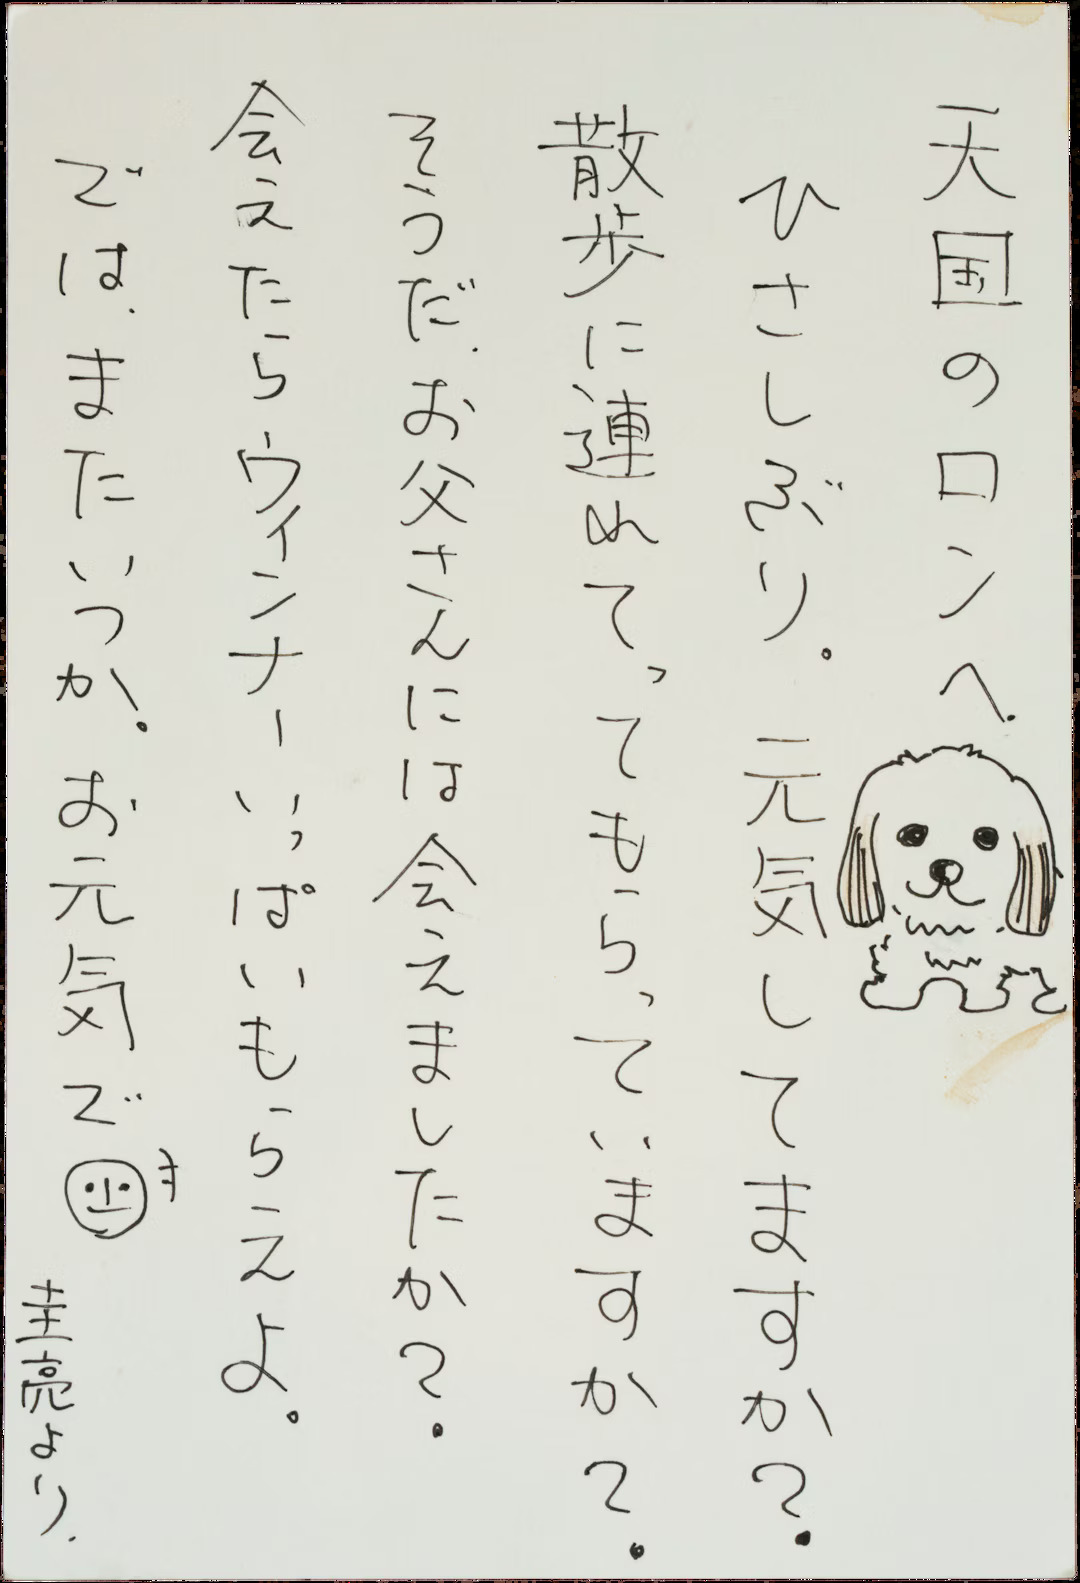 天国のロンへ.
ひさしぶり。元気してますか?
散歩に連れてってもらっていますか?
そうだ、お父さんには会えましたか?
会えたらウィンナーいっぱいもらえよ。
では、またいつか。お元気で
圭亮より.